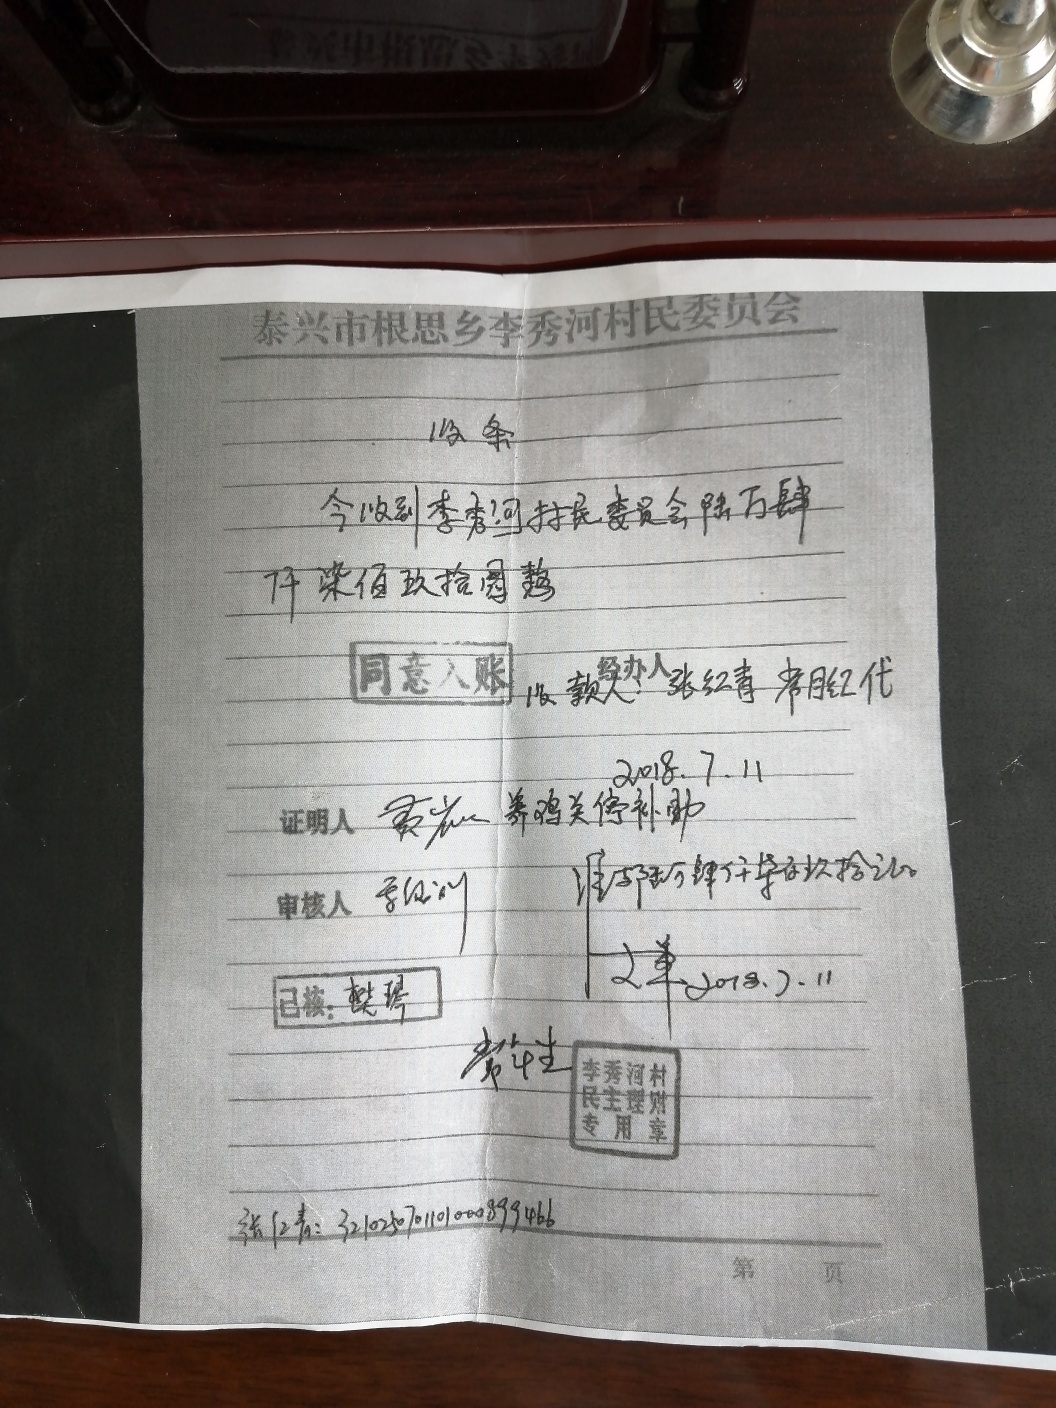 泰兴市根思乡李秀河村民委员会
收条
今收到李秀河村民委员会陆万肆
仟柒佰玖拾圆整
同意入账
经办人
收款人：张红青 常月红代
2018.7.11
证明人
养鸡关停补助
审核人
2018.7.11
已核：樊琴
李秀河村
民主理财
专用章
张红青：3210250701101000899466
第 页